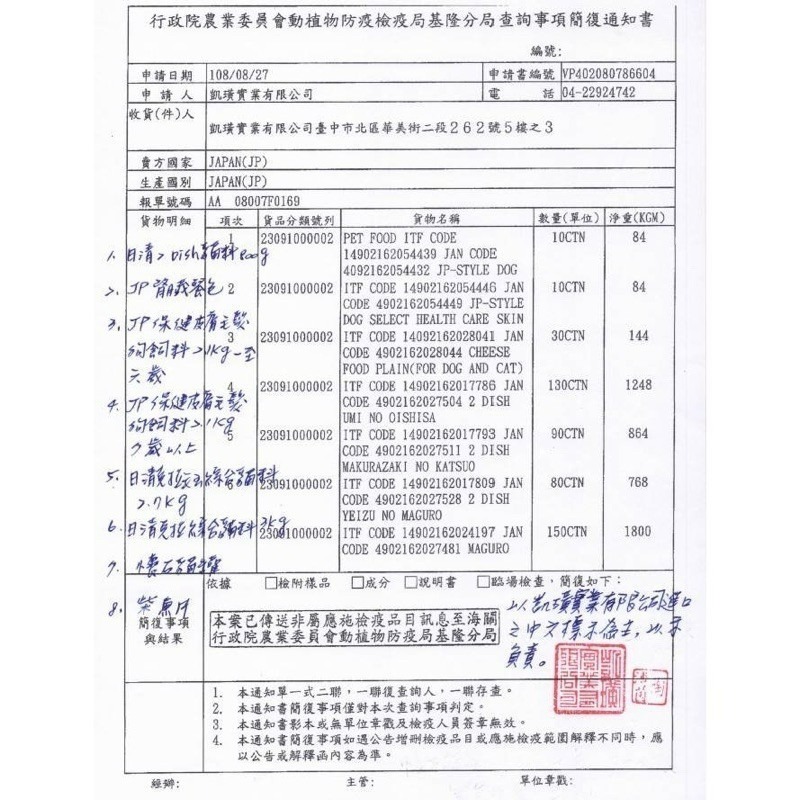 行政院農業委員會動植物防疫檢疫局基隆分局查詢事項簡復通知書
編號:
申請日期 108/08/27 申請書編號 VP402080786604
申請人 凱璜實業有限公司 電話 04-22924742
收貨(件)人
凱璜實業有限公司臺中市北區華美街二段262號5樓之3
賣方國家 JAPAN(JP)
生產國別 JAPAN(JP)
報單號碼 AA 08007F0169
貨物明細 項次 貨品分類號列 貨物名稱 數量(單位) 淨重(KGM)
1 23091000002 PET FOOD ITF CODE 10CTN 84
14902162054439 JAN CODE
4092162054432 JP-STYLE DOG
2 23091000002 ITF CODE 14902162054446 JAN 10CTN 84
CODE 4902162054449 JP-STYLE
DOG SELECT HEALTH CARE SKIN
3 23091000002 ITF CODE 14092162028041 JAN 30CTN 144
CODE 4902162028044 CHEESE
FOOD PLAIN(FOR DOG AND CAT)
4 23091000002 ITF CODE 14902162017786 JAN 130CTN 1248
CODE 4902162027504 2 DISH
UMI NO OISHISA
5 23091000002 ITF CODE 14902162017793 JAN 90CTN 864
CODE 4902162027511 2 DISH
MAKURAZAKI NO KATSUO
6 23091000002 ITF CODE 14902162017809 JAN 80CTN 768
CODE 4902162027528 2 DISH
YEIZU NO MAGURO
23091000002 ITF CODE 14902162024197 JAN 150CTN 1800
CODE 4902162027481 MAGURO
1. 日清2 Dish貓料800g
2. JP
3. JP保健皮膚毛髮
狗飼料2.1kg一至
六歲
4. JP保健皮膚毛髮
狗飼料2.1kg
7歲以上
5. 日清 綜合貓料
2.7kg
6. 日清 綜合貓料3kg
7. 懷石貓罐
8. 柴魚片
依據 □檢附樣品 □成分 □說明書 □臨場檢查，簡復如下：
簡復事項
與結果
本案已傳送非屬應施檢疫品目訊息至海關
行政院農業委員會動植物防疫局基隆分局
以凱璜實業有限公司進口
之中文標示為主，以示
負責。
1. 本通知單一式二聯，一聯復查詢人，一聯存查。
2. 本通知書簡復事項僅對本次查詢事項判定。
3. 本通知書影本或無單位章戳及檢疫人員簽章無效。
4. 本通知書簡復事項如遇公告增刪檢疫品目或應施檢疫範圍解釋不同時，應
以公告或解釋函內容為準。
經辦: 主管: 單位章戳: